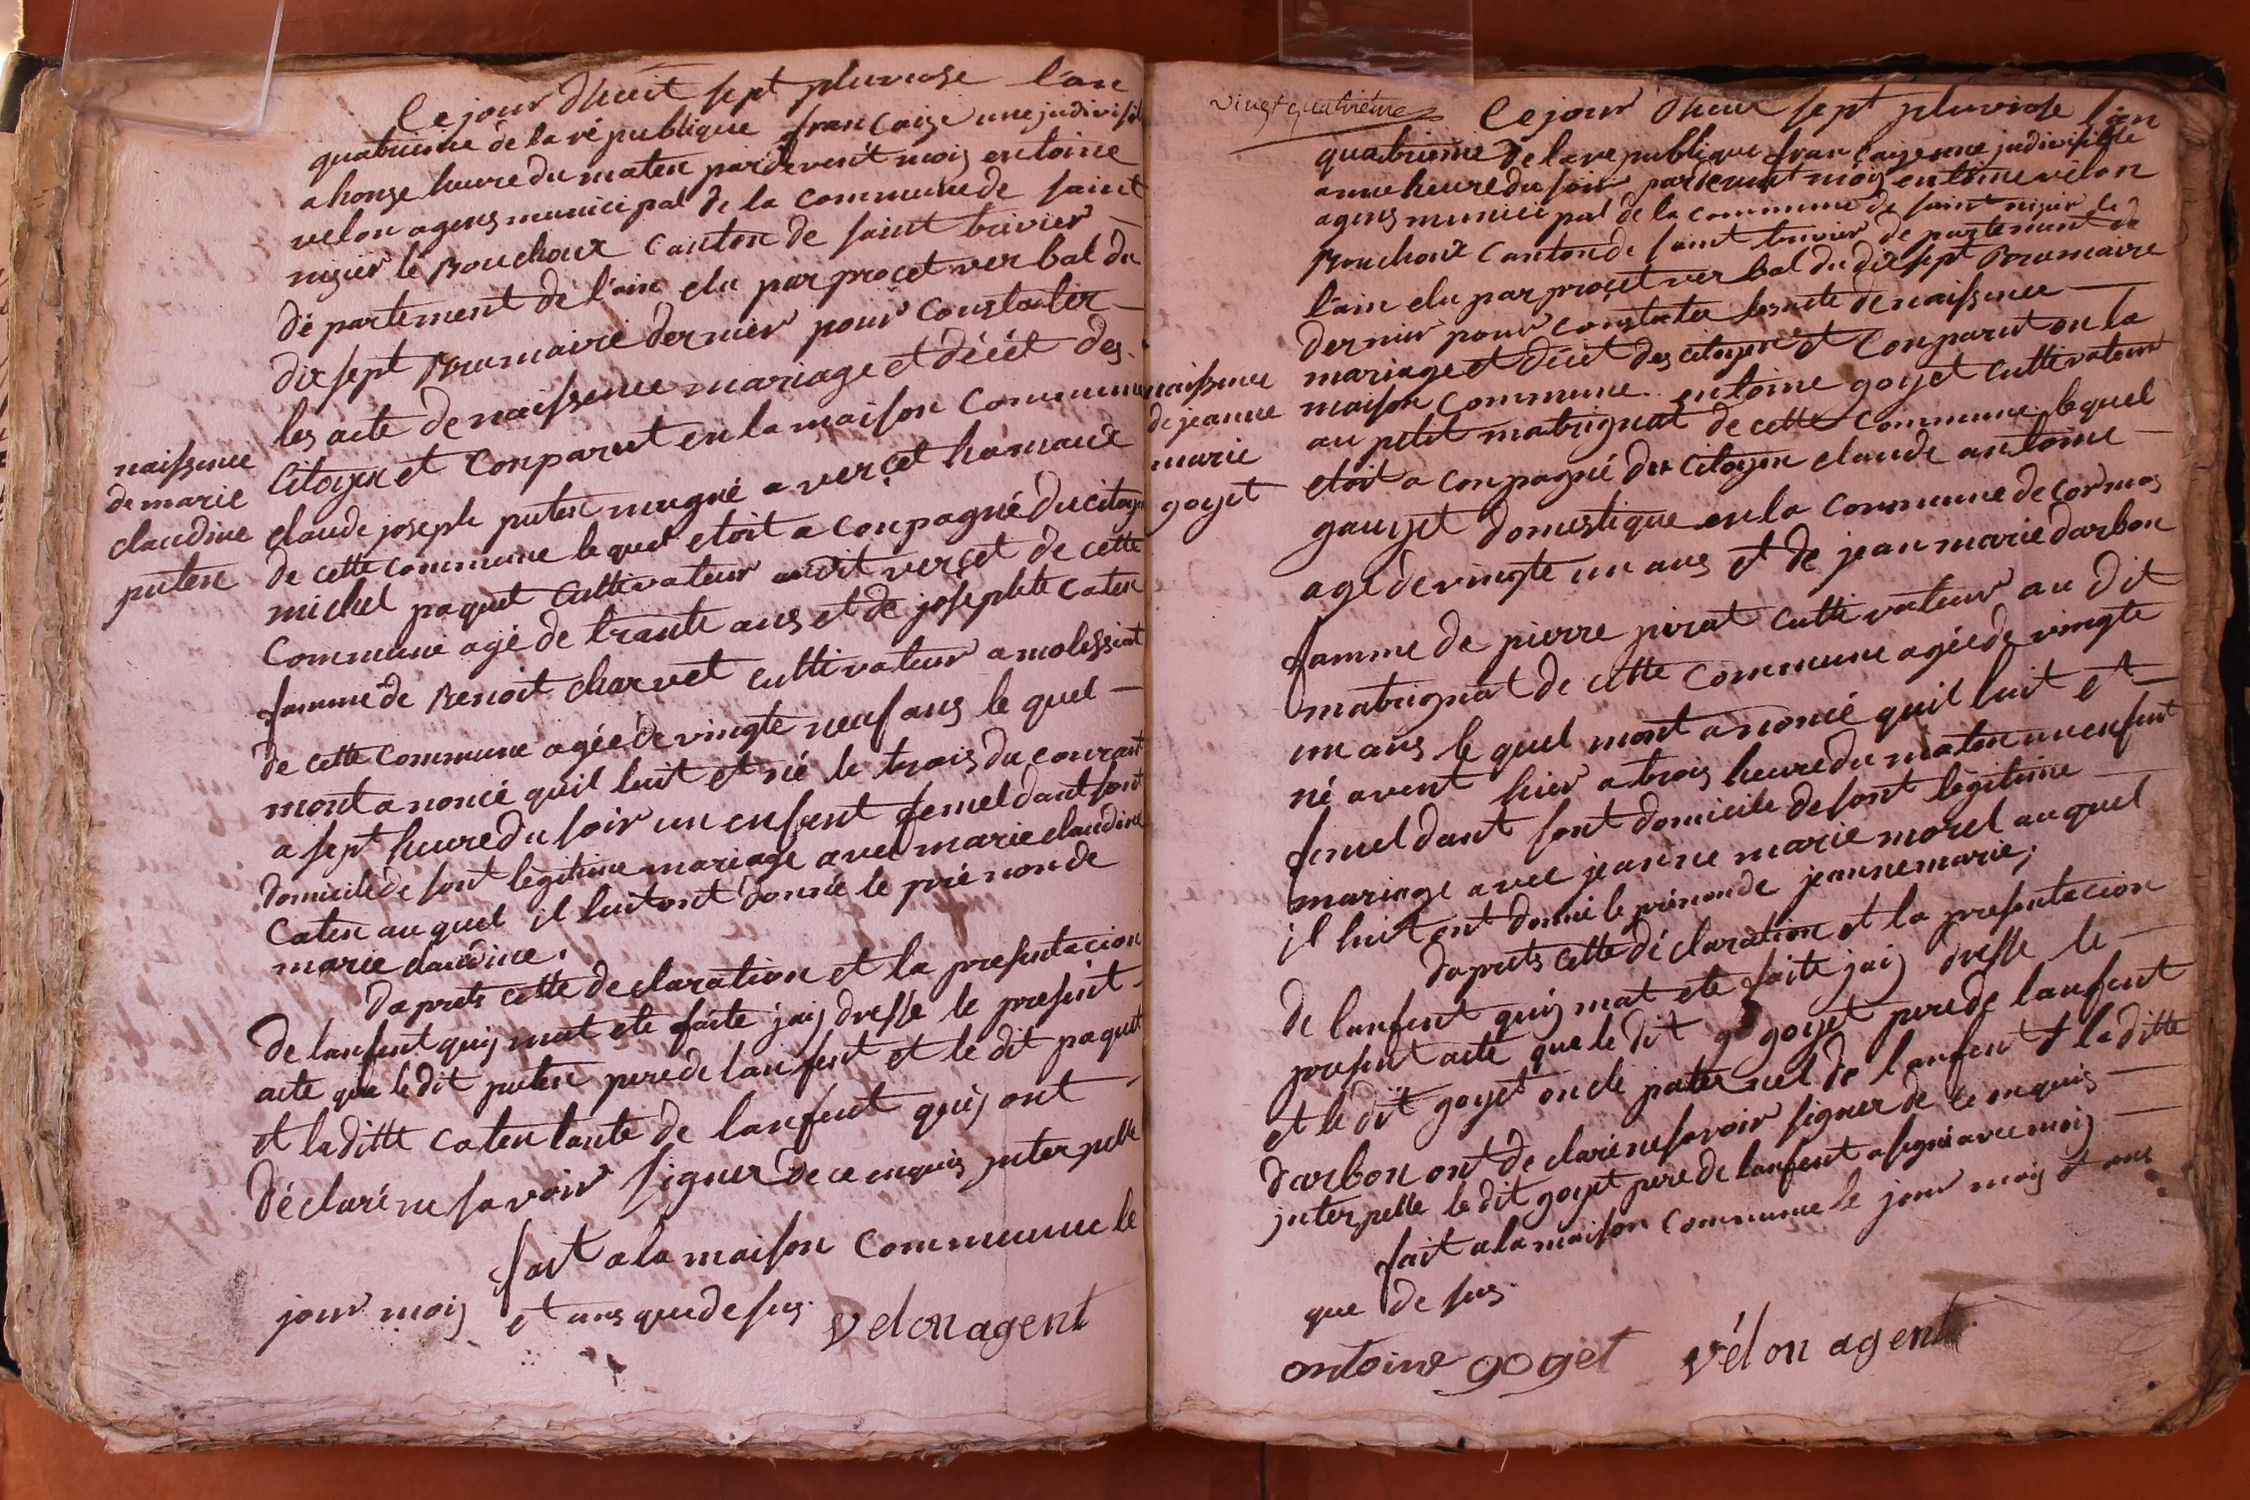 Ce jour dhuit sept pluviose l'an
quatrieme de la république francaise une jndivisible
a honze heure du maten pardevent moij entoine
velon agens municipal de la commune de saint
nizier le Bouchoux canton de saint trivier
département de l'ain elu par procet verbal du
dix sept Brumaire dernier pour constater
les acte de naissence mariage et décét des
citoyen et conparut en la maison commune
claude joseph puten mugné a verset hamaude
de cette commune le quel etoit a conpagné du citoyen
michel paquet cultivateur audit verset de cette
commune agé de trante ans et de josephte caten
famme de Benoit charvet cultivateur a molissiat
de cette commune agéé de vingte neuf ans le quel
mont a noncé quil luit et né le trois du courant
a sept heure du soir un enfent femel dant sont
domicile de sont légitime mariage avec marie claudine
caten au quel il luit ont donné le prénon de
marie claudine.
daprets cette declaration et la presentacion
de lanfent quij mat ete faite jaij dresse le present
acte que le dit puten pere de lanfent et le dit paquet
et la ditte caten tante de lanfent quij ont
déclaré ne savoir signer de ce enquis jnterpelle
fait a la maison commune le
jour moij et ans que de sus.
velon agent
naissence
de marie
claudine
puten
vingt quatrieme
Ce jour dhuit sept pluviose l'an
quatrieme de la republique francaise une jndivisible
a une heure du soir pardevent moij entoine velon
agens municipal de la commune de saint nizier le
Bouchoux canton de saint trivier departement de
l'ain elu par procet verbal du dix sept Brumaire
dernier pour constater les acte de naissence
mariage et décét des citoyen et conparut en la
maison commune entoine goyet cultivateur
au petit matrignat de cette commune lequel
etoit a conpagné du citoyen claude antoine
gauyet domestique en la commune de cormos
agé de vingte un ans et de jean marie darbon
famme de pierre pirat cultivateur au dit
matrignat de cette commune agéé de vingte
un ans le quel mont a noncé quil luit et
né avent hier a trois heure du maten un enfent
femel dant sont domicile de sont légitime
mariage avec jeanne marie morel au quel
il luit ont donné le prénon de jeanne marie;
daprets cette déclaration et la presentacion
de lanfent quij mat ete faite jaij dresse le
present acte que le dit go goyet pere de lanfent
et le dit goyet oncle paternel de lanfent et la ditte
darbon ont declaré ne savoir signer de ce enquis
jnterpelle le dit goyet pere de lanfent a signé avec moij
fait a la maison commune le jour moij et ans
que de sus.
antoine goyet vélon agent
naissence
de jeanne
marie
goyet